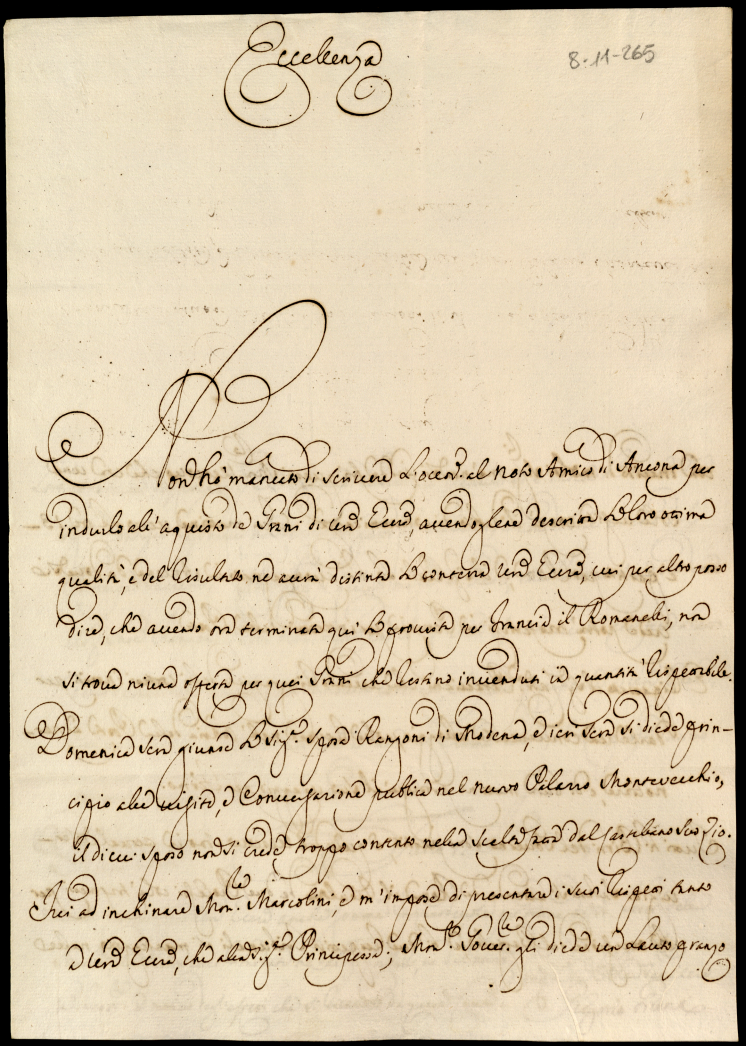 Eccellenza
8-11-265
Non hò mancato di scrivere l'occor.e al noto Amico di Ancona per
indurlo all'aquisto de Grani di Vrã Eccza, avendoglene descritta la loro ottima
qualità, e del risultato ne averà distinta la contezza Vrã Eccza, cui per altro posso
dire, che avendo ora terminata quì la provista per Francia il Romanelli, non
si trova niuna offerta per quei Grani che restino invenduti in quantità
Domenica sera giunse la Sig.ra Sposa Rangoni di Modena, e ieri sera si diede prin-
cipio alle visite, e Conversazione publica nel nuovo Palazzo Montevecchio,
il di cui sposo non si crede troppo contento nella scelta fatta dal Castellano suo Zio.
Ieri ad inchinare Mon.re Marcolini, e m'impose di presentare i suoi tanto
a Vrã Eccza, che alla Sig.ra Principessa; Mon.r Gover.re gli diede un Lauto pranzo